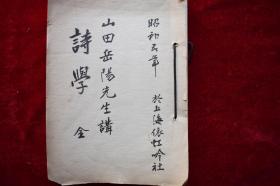 昭和五年 於上海依虹吟社
山田岳陽先生講
詩學 全